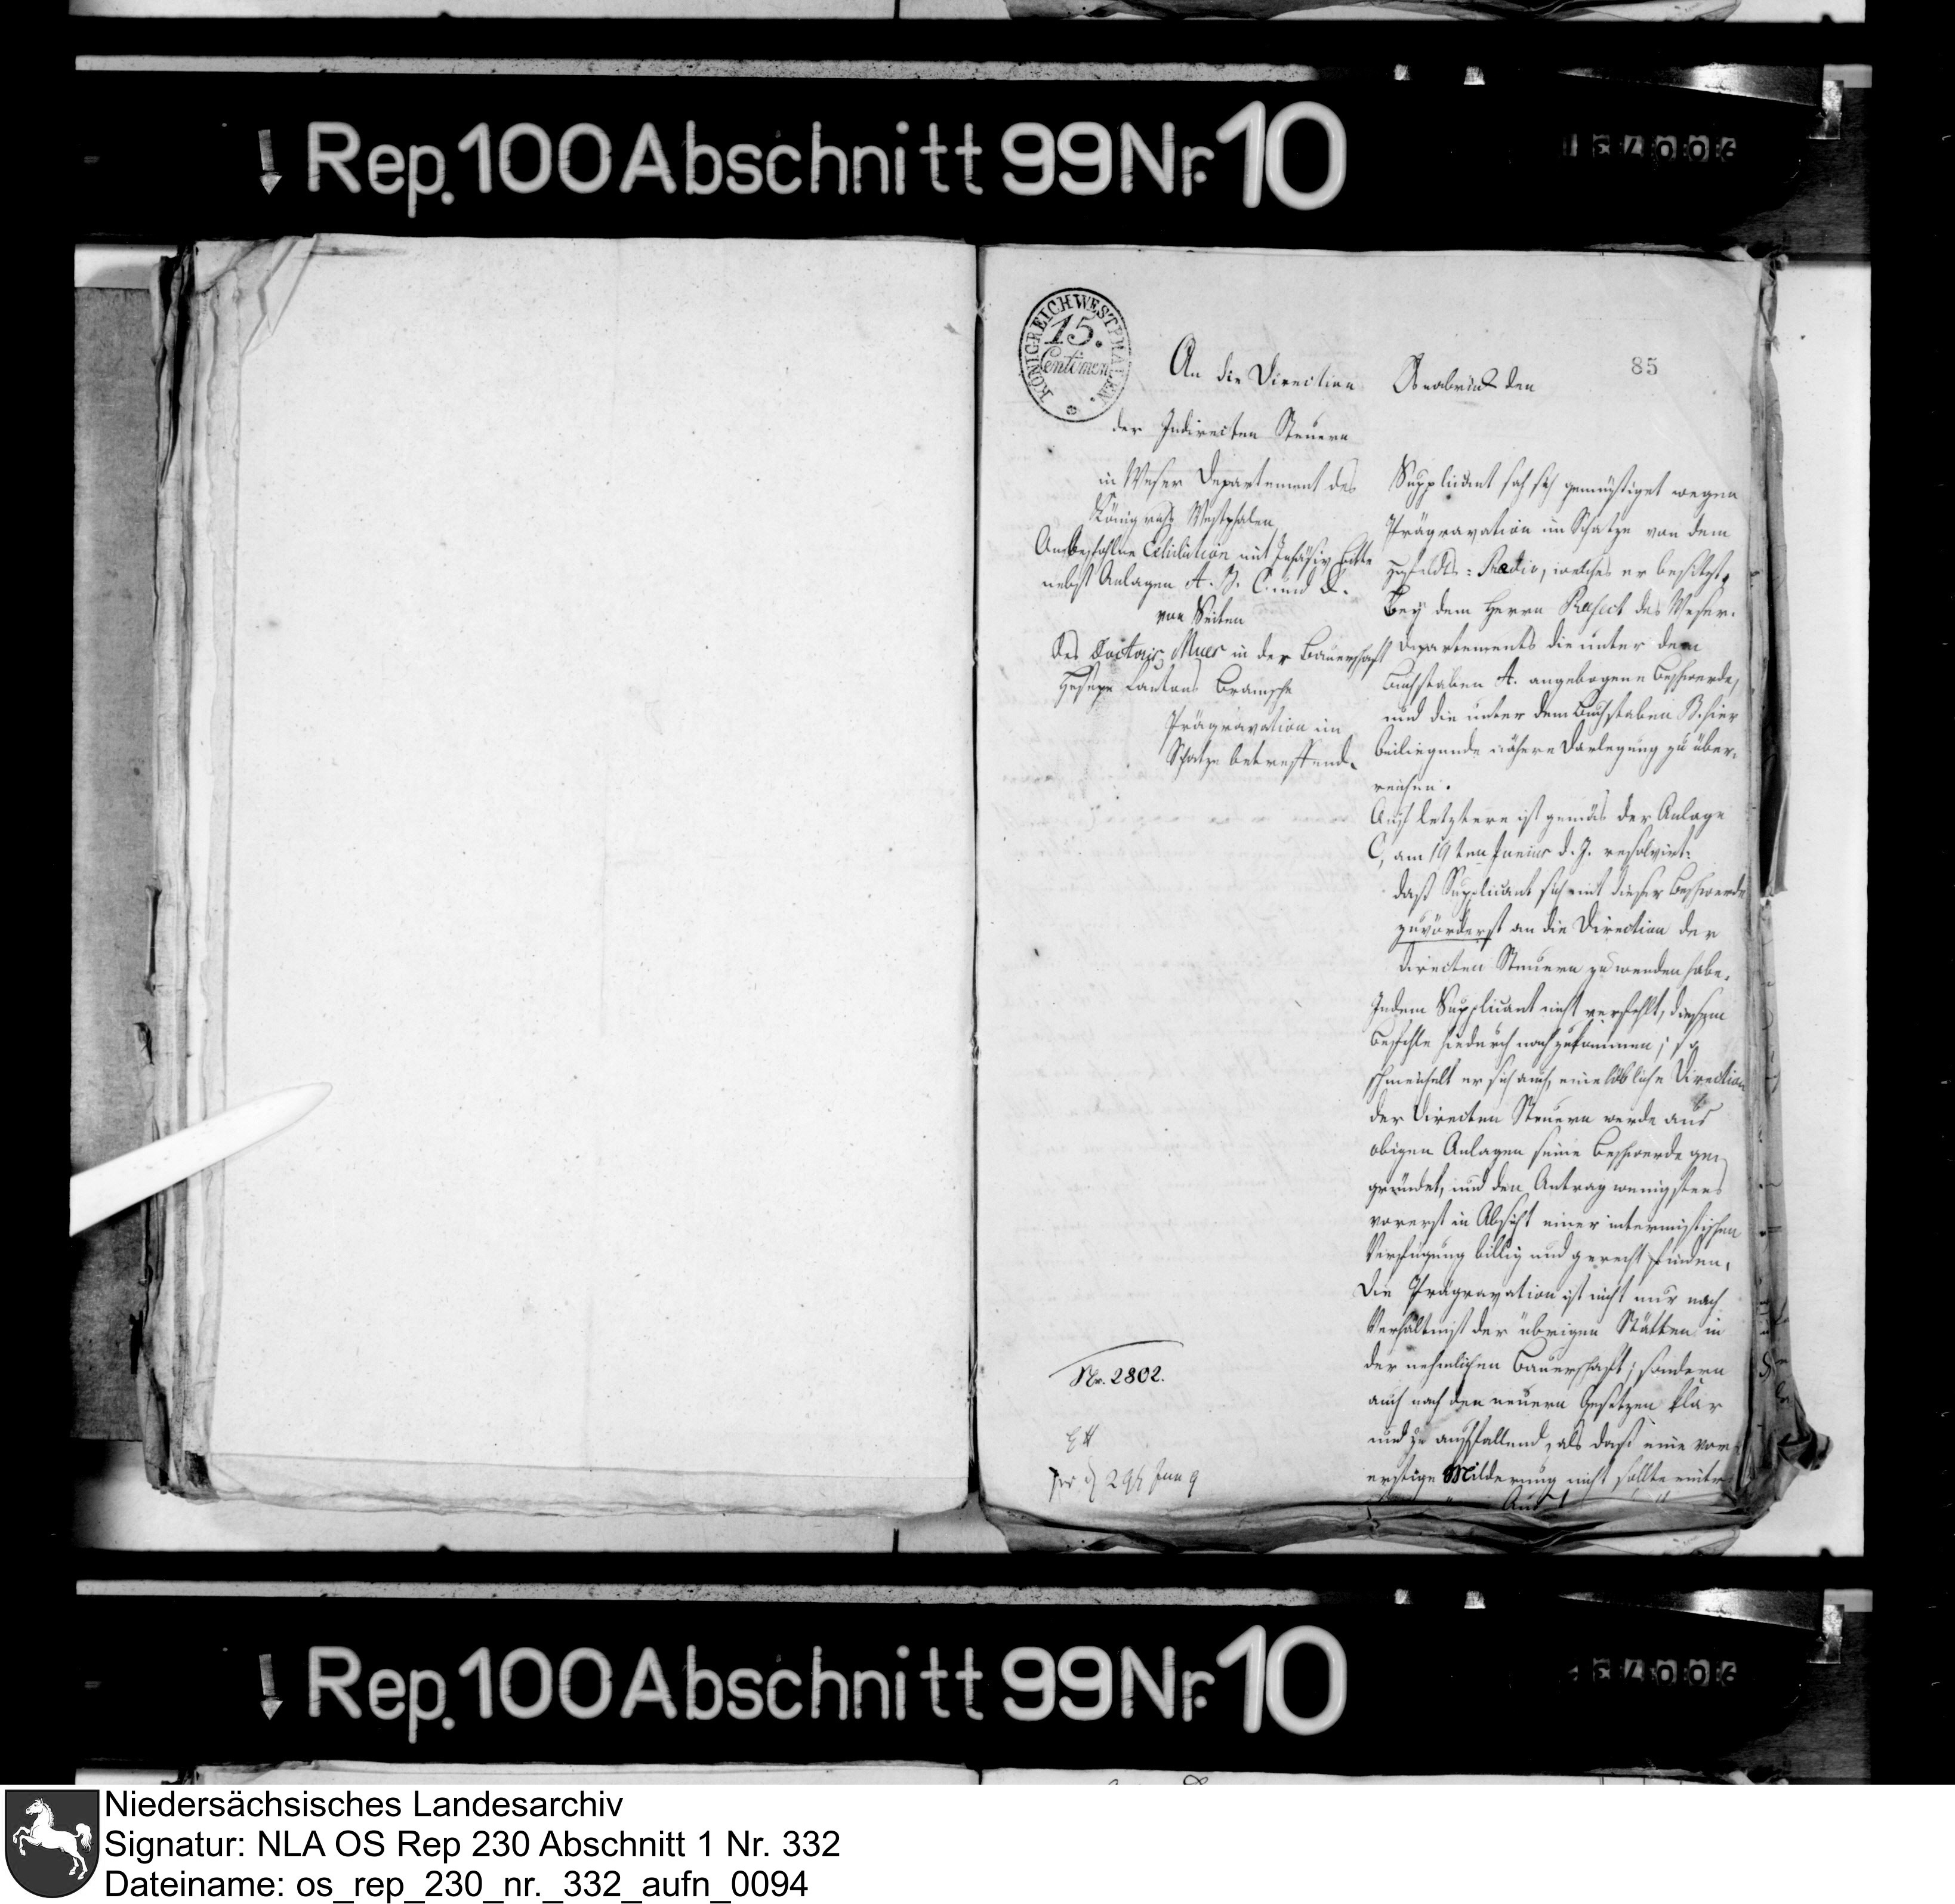 Rep. 100 Abschnitt 99 Nr. 10
KÖNIGREICH WESTPHALEN.
15.
Centimen
85
An die Direction
der Indirecten Steuern
in Weser Departement des
Königreichs Westphalen
nebst Anlagen A. B. C. und D.
von Seiten
des Doctoris Mues in der Bauerschaft
Hesepe Cantons Bramsche
Prägravation im
Schatze betreffend.
Nr. 2802.
Osnabrück den
Supplicant sah sich gemüßiget wegen
Prägravation im Schatze von dem
Praedio, welches er besitzt,
bey dem Herrn Praefect des Weser-
Departements die unter dem
Buchstaben A. angebogene Beschwerde,
und die unter dem Buchstaben B. hier
beiliegende nähere Darlegung zu über-
reichen.
Auf letztere ist gemäs der Anlage
C, am 19ten Junius d. J. resolvirt:
daß Supplicant sich mit dieser Beschwerde
zuvörderst an die Direction der
directen Steuern zu wenden habe.
Indem Supplicant nicht verfehlt, diesem
Befehle hiedurch nachzukommen; so
schmeichelt er sich auch, eine löbliche Direction
der directen Steuern werde aus
obigen Anlagen seine Beschwerde ge-
gründet, und den Antrag wenigstens
vorerst in Absicht einer interimistischen
Verfügung billig und gerecht finden.
Die Prägravation ist nicht nur nach
Verhältniß der übrigen Stätten in
der nehmlichen Bauerschaft; sondern
auch nach den neuern Gesetzen klar
und zu auffallend, als daß eine vor-
erstige Milderung nicht sollte eintre
Rep. 100 Abschnitt 99 Nr. 10
Niedersächsisches Landesarchiv
Signatur: NLA OS Rep 230 Abschnitt 1 Nr. 332
Dateiname: os_rep_230_nr._332_aufn_0094